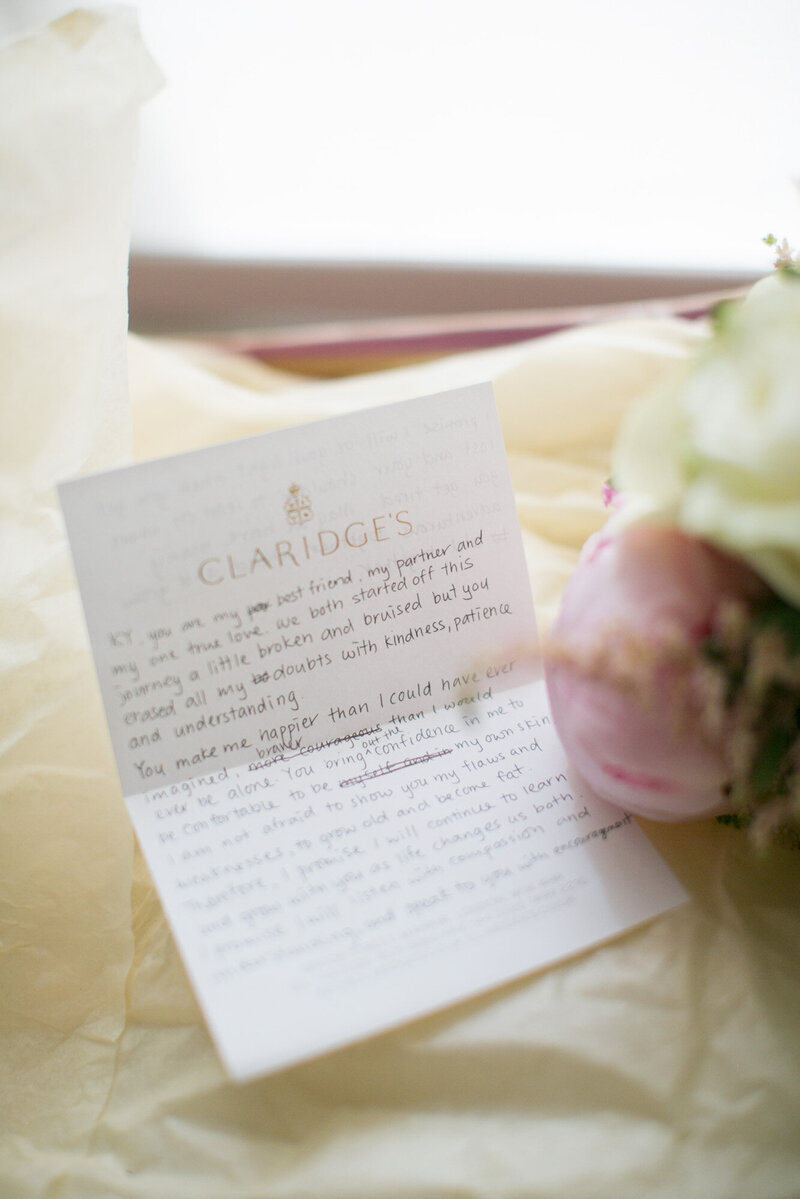 CLARIDGE'S
KY, you are my best friend, my partner and
my one true love. We both started off this
journey a little broken and bruised but you
erased all my doubts with kindness, patience
and understanding.
You make me happier than I could have ever
imagined, more courageous braver than I would
ever be alone. You bring out the confidence in me to
be comfortable to be myself and in my own skin
I am not afraid to show you my flaws and
weaknesses, to grow old and become fat.
Therefore, I promise I will continue to learn
and grow with you as life changes us both.
I promise I will listen with compassion and
understanding, and speak to you with encouragement